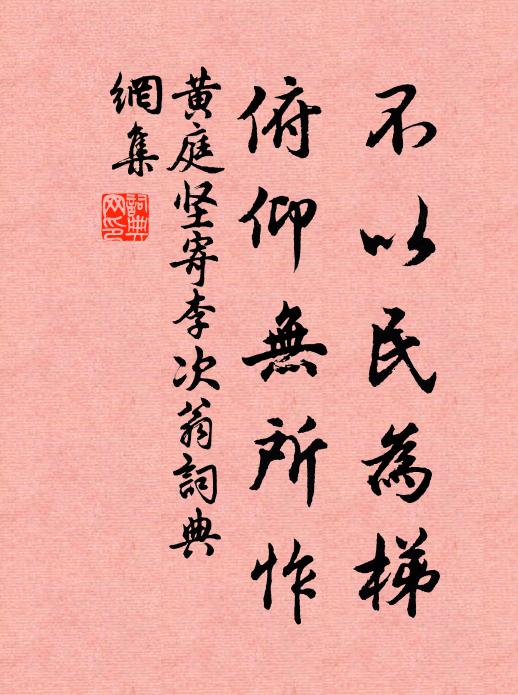 不以民為梯
俯仰無所怍
黄庭坚寄李次翁詞典
網集
詞典
网印